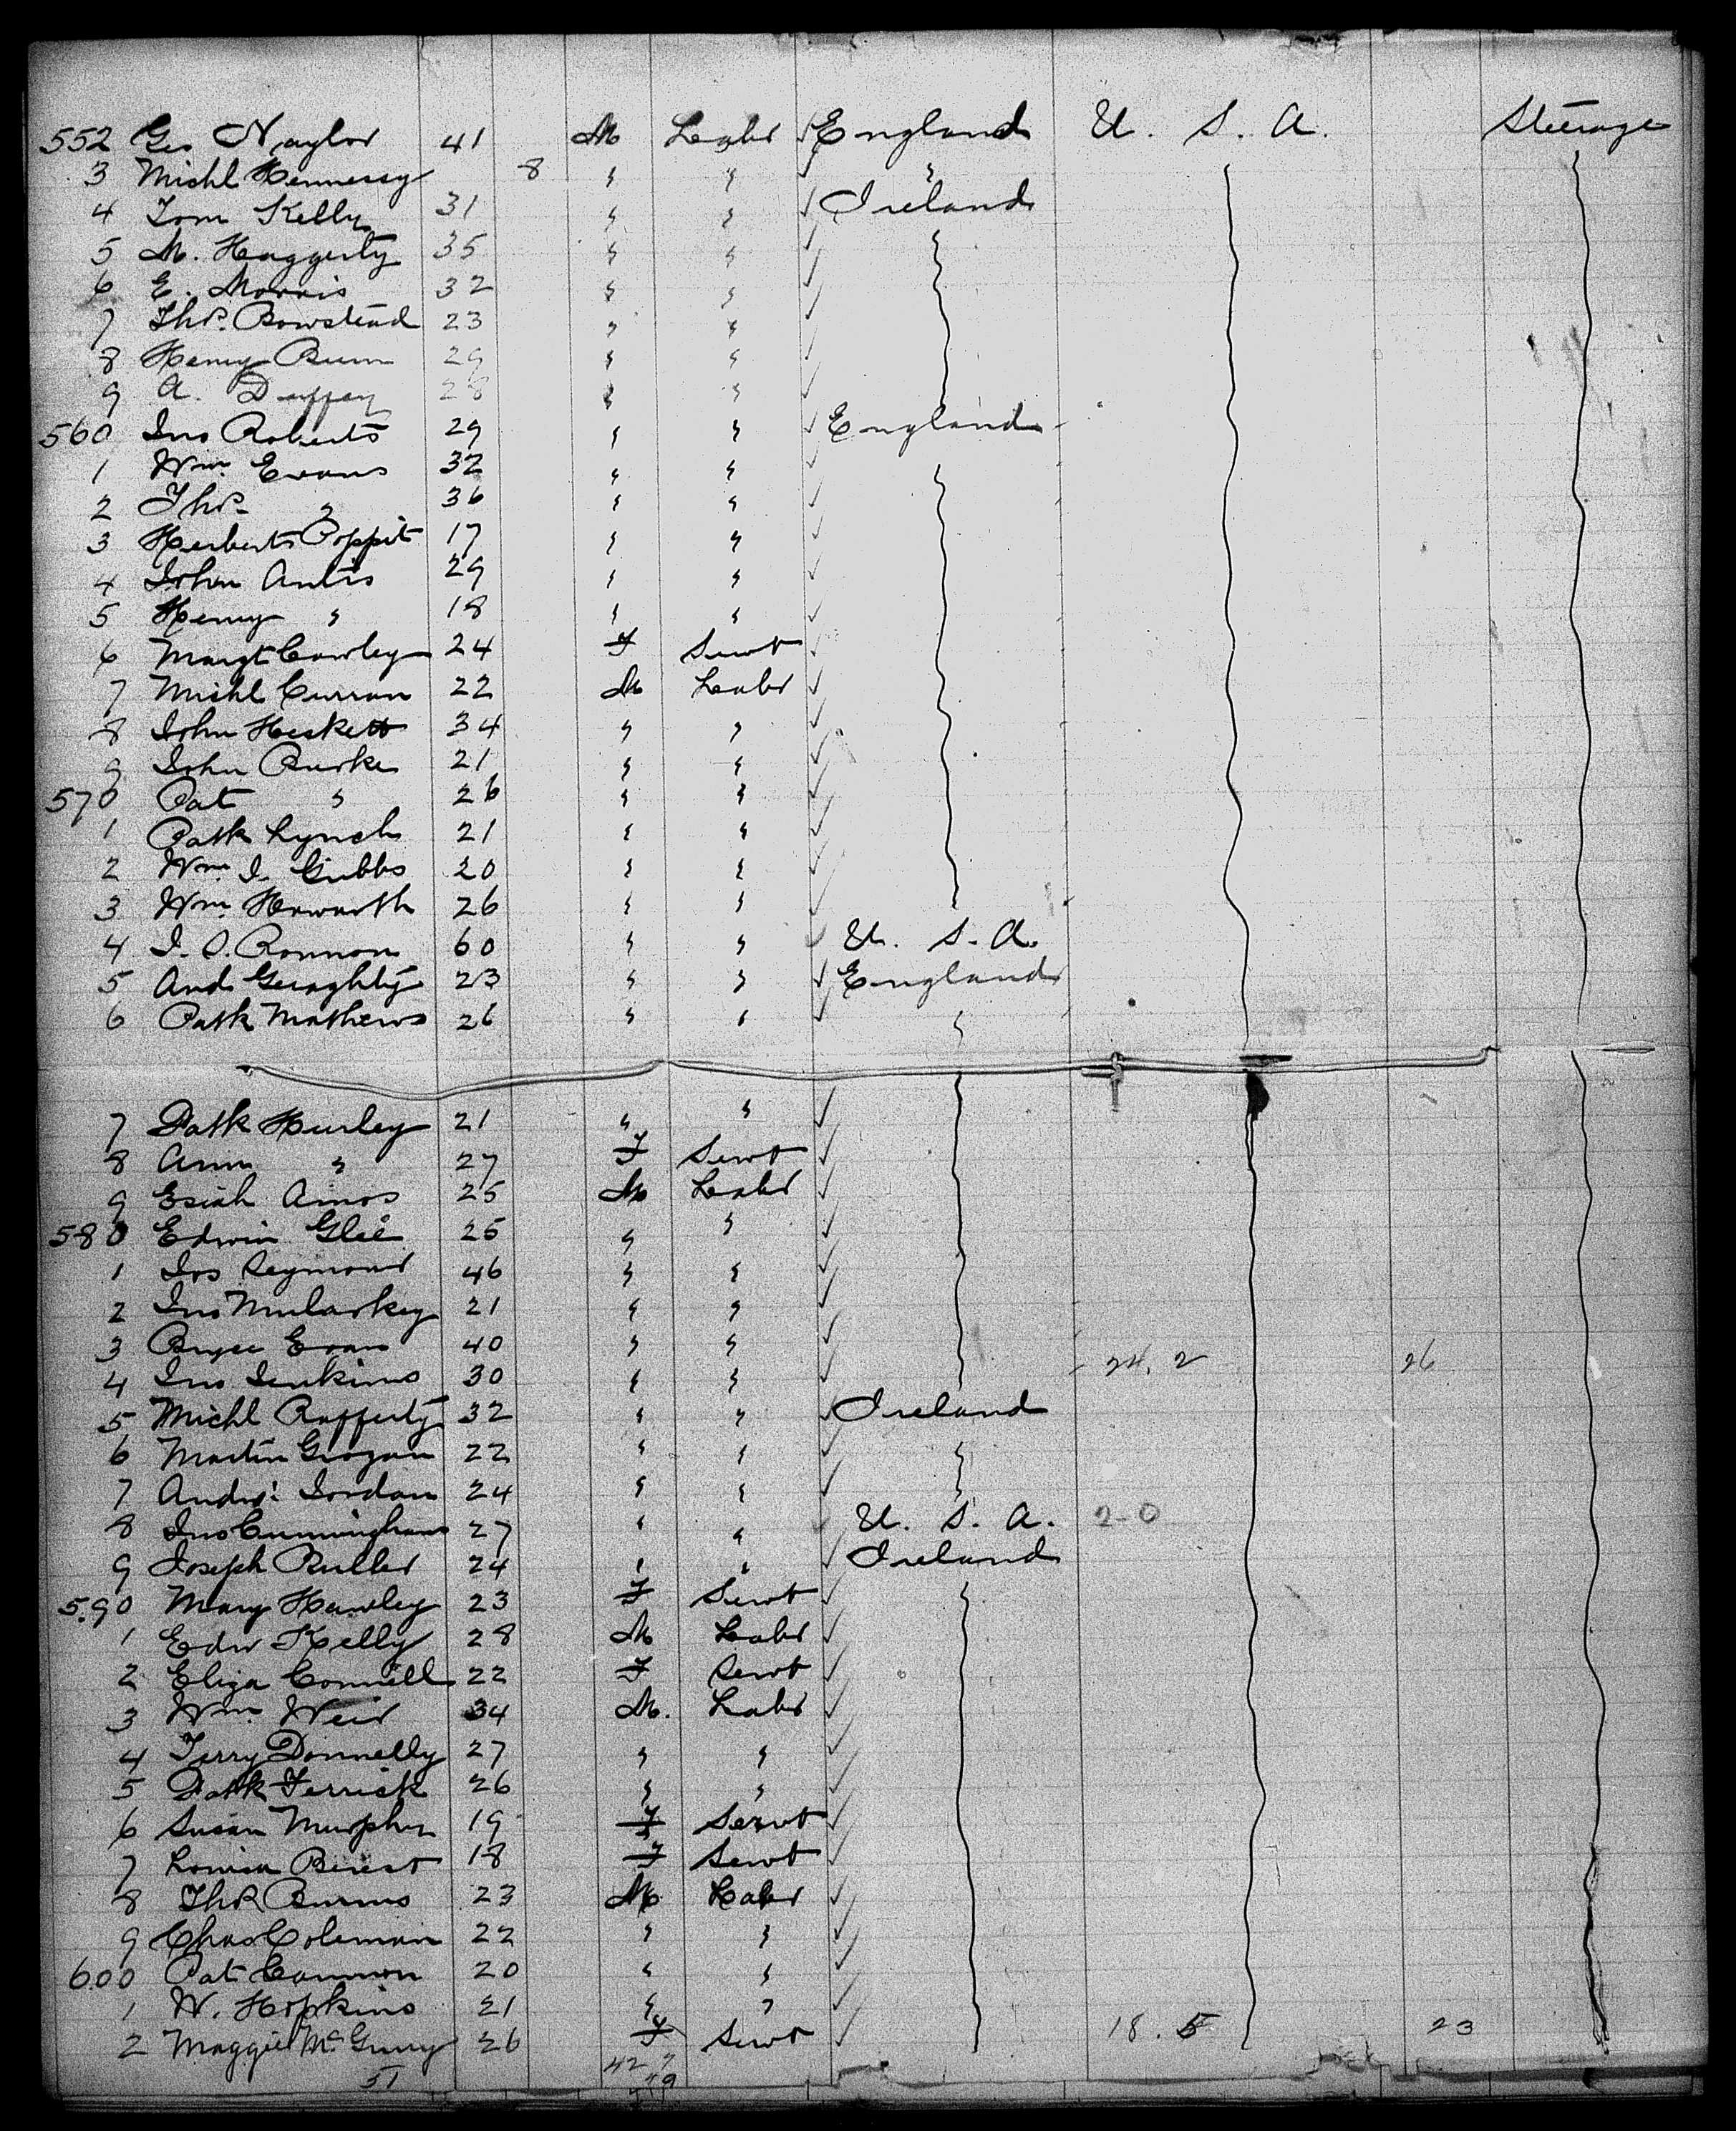 552 Geo Naylor 41 M Labr ✓ England U. S. A. Steerage
3 Michl Hennessy 8 " " ✓ "
4 Tom Kelly 31 " " ✓ Ireland
5 M. Haggerty 35 " " ✓
6 E. Morris 32 " " ✓
7 Thos. Bowstead 23 " " ✓
8 Henry 29 " " ✓
9 A. Duffey 28 " " ✓
560 Jno Roberts 29 " " ✓ England
1 Wm. Evans 32 " " ✓
2 Thos. " 36 " " ✓
3 Herbert Poppit 17 " " ✓
4 John Antis 29 " " ✓
5 Henry " 18 " " ✓
6 Margt Cowley 24 F Servt ✓
7 Michl Curran 22 M Labr ✓
8 John Heskett 34 " " ✓
9 John Burke 21 " " ✓
570 Pat " 26 " " ✓
1 Patk Lynch 21 " " ✓
2 Wm. J. Gibbs 20 " " ✓
3 Wm. Howarth 26 " " ✓
4 60 " " ✓ U. S. A.
5 And Geraghty 23 " " ✓ England
6 Patk Mathews 26 " " ✓ "
7 Patk Hurley 21 " " ✓
8 Ann " 27 F Servt ✓
9 Esiah Amos 25 M Labr ✓
580 Edwin 25 " " ✓
1 Jos Seymour 46 " " ✓
2 Jno Mularkey 21 " " ✓
3 Bryce Evans 40 " " ✓ 24. 2 26
4 Jno Jenkins 30 " " ✓
5 Michl Rafferty 32 " " ✓ Ireland
6 Martin Grogan 22 " " ✓ "
7 Andw. Jordan 24 " " ✓ "
8 Jno Cunningham 27 " " ✓ U. S. A. 2-0
9 Joseph Butler 24 " " ✓ Ireland
590 Mary Hawley 23 F Servt ✓
1 Edw Kelly 28 M Labr ✓
2 Eliza Connell 22 F Servt ✓
3 Wm. Weir 34 M. Labr ✓
4 Terry Donnelly 27 " " ✓
5 Patk Ferrick 26 " " ✓
6 Susan Murphy 19 F Servt ✓
7 Louisa 18 F Servt ✓
8 Thos Burns 23 M Labr ✓
9 Chas Coleman 22 " " ✓
600 Pat Cannon 20 " " ✓
1 W. Hopkins 21 " " ✓
2 Maggie McGurry 26 F Servt ✓ 18. 5 23
51 42 7
49